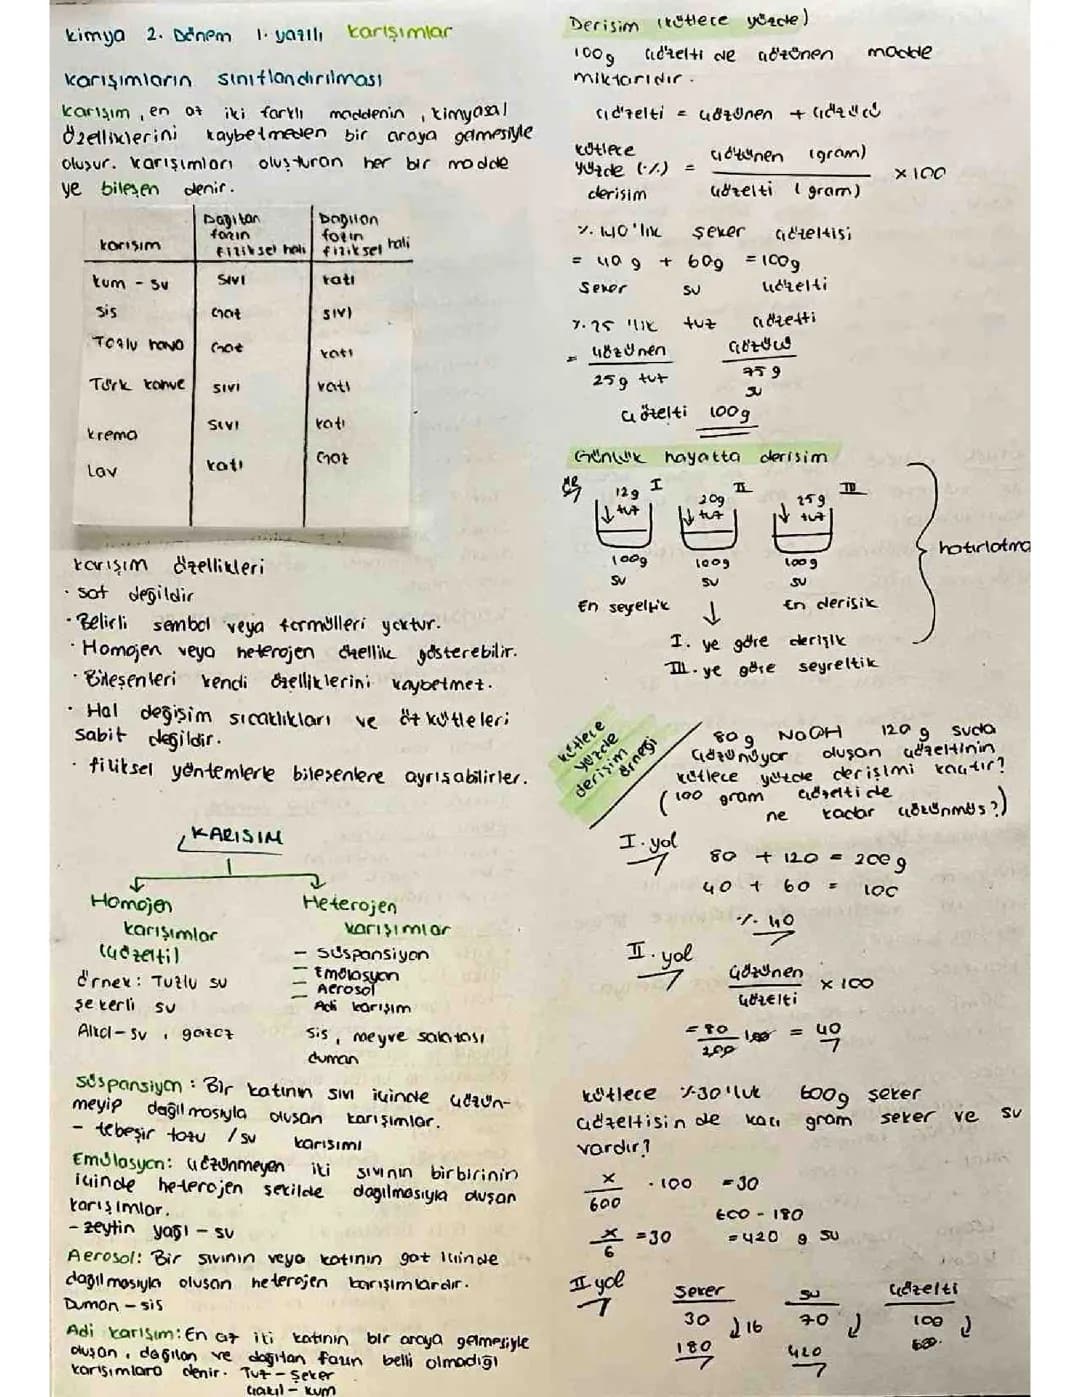 kimya 2. Dönem 1. yazılı karışımlar
karışımların sınıflandırılması
karışım, en az iki farklı maddenin, kimyasal
özelliklerini kaybetmeden bir araya gelmesiyle
oluşur. karışımları oluşturan her bir madde
ye bileşen denir.
karışım Dağıtan fazın fiziksel hali Dağılan fazın fiziksel hali
kum - su sıvı katı
sis Gaz sıvı
Tozlu hava Gaz katı
Türk kahve sıvı katı
krema sıvı katı
Lav katı Gaz
karışım özellikleri
· saf değildir
· Belirli sembol veya formülleri yoktur.
· Homojen veya heterojen özellik gösterebilir.
· Bileşenleri kendi özelliklerini kaybetmez.
· Hal değişim sıcaklıkları ve öz kütleleri
sabit değildir.
· fiziksel yöntemlerle bileşenlere ayrışabilirler.
KARISIM
Homojen
karışımlar
(çözelti)
örnek: Tuzlu su
şekerli su
Alkol-su, gazoz
Heterojen
karışımlar
- süspansiyon
- Emülasyon
- Aerosol
- Adi karışım
sis, meyve salatası
duman
süspansiyon: Bir katının sıvı içinde çözün-
meyip dağılmasıyla olusan karışımlar.
- tebeşir tozu / su karısımı
Emülasyon: çözünmeyen iki sıvının birbirinin
içinde heterojen şekilde dağılmasıyla oluşan
karışımlar.
- zeytin yağı - su
Aerosol: Bir sıvının veya katının gaz içinde
dağılmasıyla olusan heterojen karışımlardır.
Duman - sis
Adi karışım: En az iki katının bir araya gelmesiyle
oluşan, dağılan ve dağıtan fazın belli olmadığı
karışımlara denir. Tuz - Şeker
çakıl - kum
Derişim (kütlece yüzde)
100g çözelti de çözünen madde
miktarıdır.
çözelti = çözünen + çözücü
kütlece yüzde (%) derisim = çözünen (gram) / çözelti (gram) x 100
%40'lık şeker çözeltisi
= 40 g + 60g = 100g
Şeker su çözelti
%25'lik tuz çözelti
= çözünen çözücü
25g tuz 75 g su
çözelti 100g
Günlük hayatta derisim
ÖR I II III
12g tuz 20g tuz 25g tuz
100g su 100g su 100g su
hatırlatma
En seyreltik En derisik
I. ye göre derişik
III. ye göre seyreltik
kütlece yüzde derişim örneği
80 g NaOH 120 g suda
çözünüyor oluşan çözeltinin
kütlece yüzde derişimi kaçtır?
(100 gram çözeltide
ne kadar çözünmüş?)
I. yol
80 + 120 = 200 g
40 + 60 = 100
% 40
II. yol
çözünen / çözelti x 100
= 80 / 200 100 = 40
kütlece %30'luk 600g şeker
çözeltisin de kaç gram seker ve su
vardır?
x / 600 · 100 = 30
600 - 180
x / 6 = 30 = 420 g su
II yol
Şeker su çözelti
30 ↓16 70 ↓ 100 ↓
180 420 600.